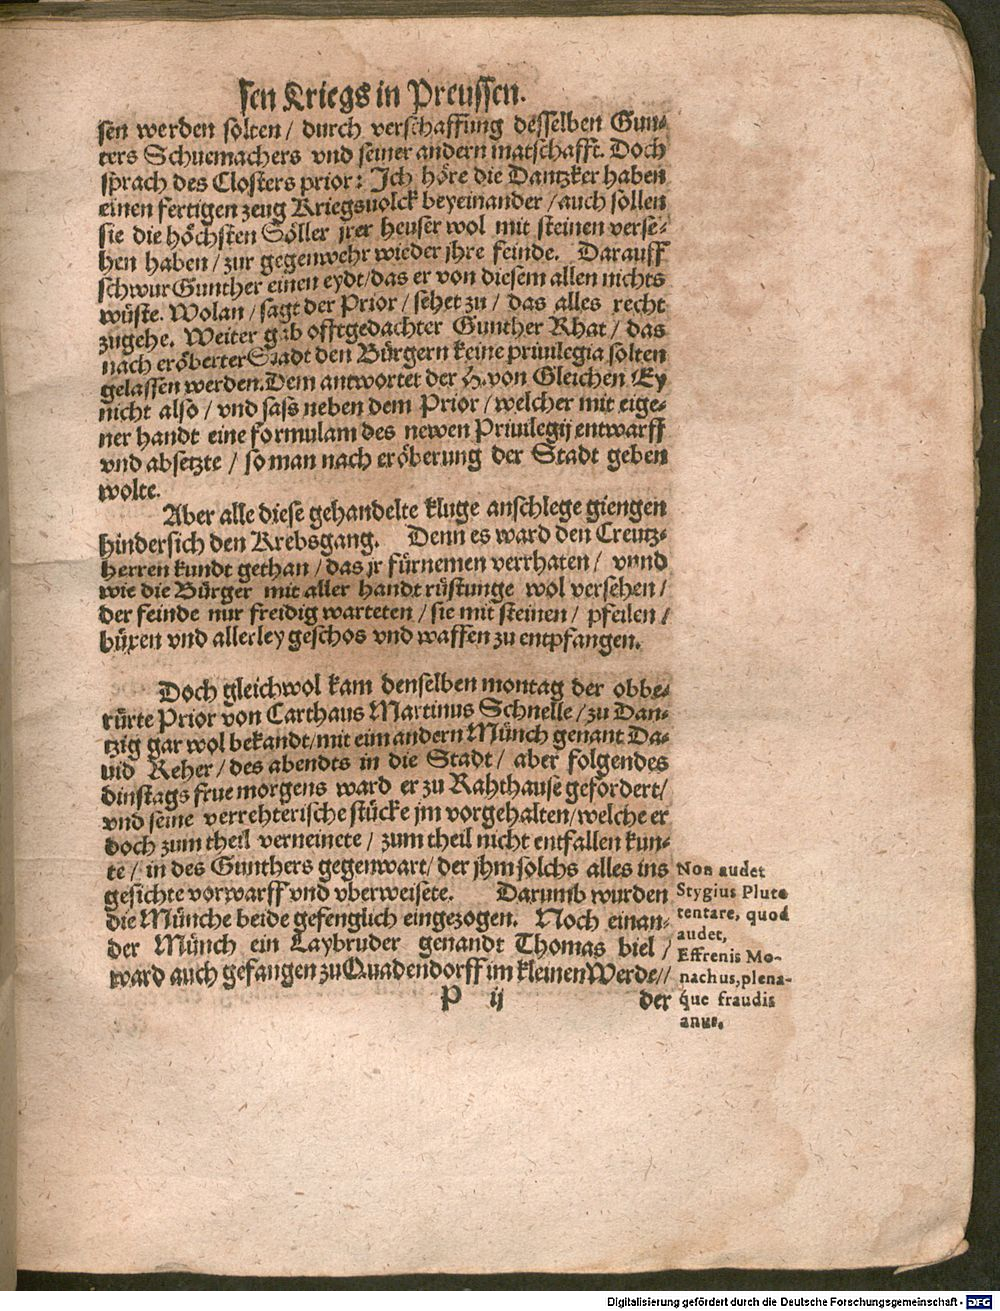 sen Kriegs in Preussen.
sen werden solten / durch verschaffung desselben Gun-
ters Schuemachers vnd seiner andern matschafft. Doch
sprach des Closters prior: Ich höre die Dantzker haben
einen fertigen zeug Kriegsuolck beyeinander / auch sollen
sie die höchsten Söller jrer heuser wol mit steinen verse-
hen haben / zur gegenwehr wieder jhre feinde. Darauff
schwur Gunther einen eydt / das er von diesem allen nichts
wüste. Wolan / sagt der Prior / sehet zu / das alles recht
zugehe. Weiter gab offtgedachter Gunther Rhat / das
nach eröberter Stadt den Bürgern keine priuilegia solten
gelassen werden. Dem antwortet der H. von Gleichen Ey
nicht also / vnd sass neben dem Prior / welcher mit eige-
ner handt eine formulam des newen Priuilegij entwarff
vnd absetzte / so man nach eröberung der Stadt geben
wolte.
Aber alle diese gehandelte kluge anschlege giengen
hindersich den Krebsgang. Denn es ward den Creutz-
herren kundt gethan / das jr fürnemen verrhaten / vnnd
wie die Bürger mit aller handt rüstunge wol versehen /
der feinde nur freidig warteten / sie mit steinen / pfeilen /
büxen vnd allerley geschos vnd waffen zu entpfangen.
Doch gleichwol kam denselben montag der obbe-
rürte Prior von Carthaus Martinus Schnelle / zu Dan-
tzig gar wol bekandt / mit eim andern Münch genant Da-
uid Reher / des abendts in die Stadt / aber folgendes
dinstags frue morgens ward er zu Rahthause gefordert /
vnd seine verrehterische stücke jm vorgehalten / welche er
doch zum theil verneinete / zum theil nicht entfallen kun-
te / in des Gunthers gegenwart / der jhm solchs alles ins
gesichte vorwarff vnd vberweisete. Darumb wurden
die Münche beide gefenglich eingezogen. Noch einan-
der Münch ein Laybruder genandt Thomas biel /
ward auch gefangen zu Quadendorff im kleinen Werde //
P ij der
Non audet
Stygius Pluto
tentare, quod
audet,
Effrenis Mo-
nachus, plena-
que fraudis
anus.
Digitalisierung gefördert durch die Deutsche Forschungsgemeinschaft - DFG